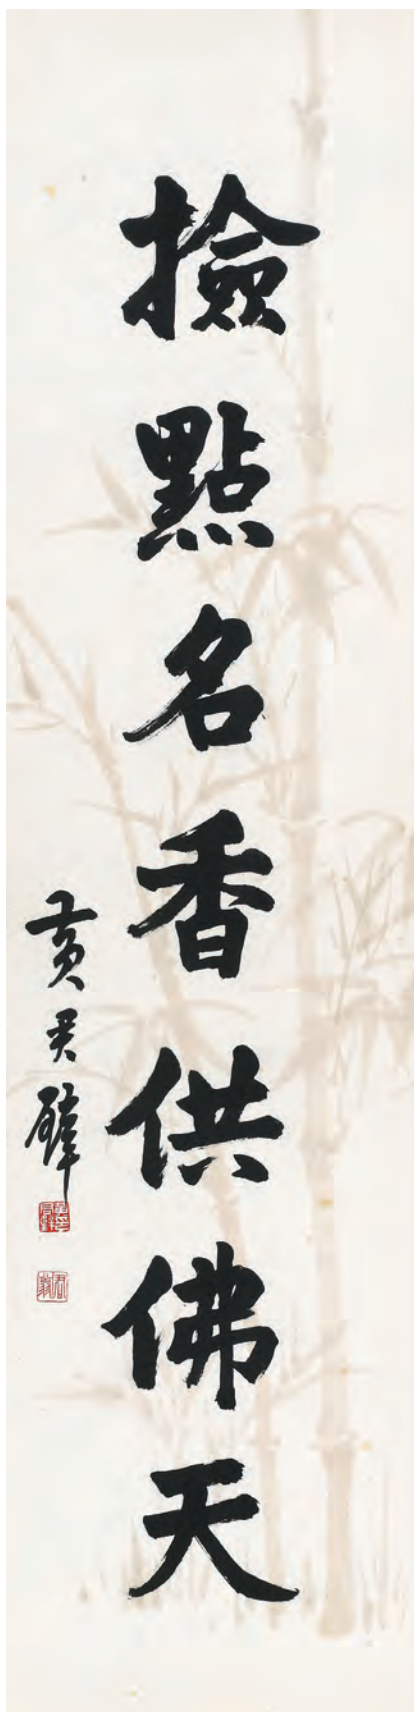 撿點名香供佛天
黃君璧